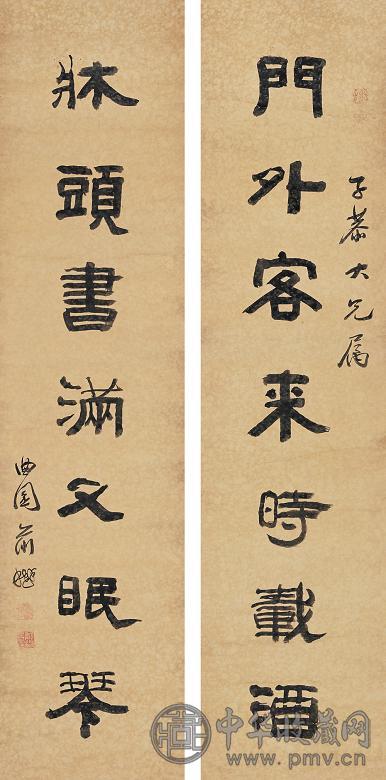 門外客来時載酒
子恭大兄屬
牀頭書滿又眠琴
曲園俞樾
中华收藏网
www.pmv.cn